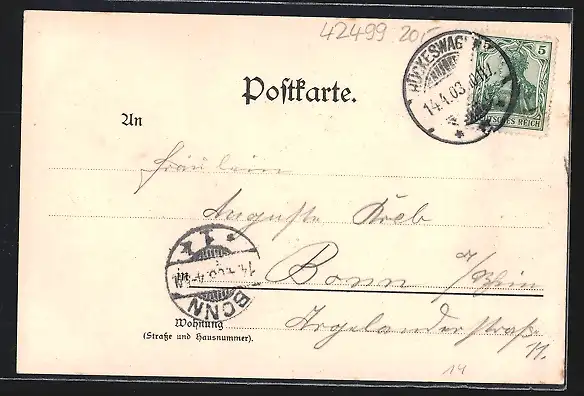 42499 20,-
HÜCKESWAGEN
14.4.03.
5
DEUTSCHES REICH
Postkarte.
An
Fräulein
Auguste Kreb
in Bonn a/Rhein
BONN
14.4.03.
1
Argelanderstraße
11.
Wohnung
(Straße und Hausnummer).
14